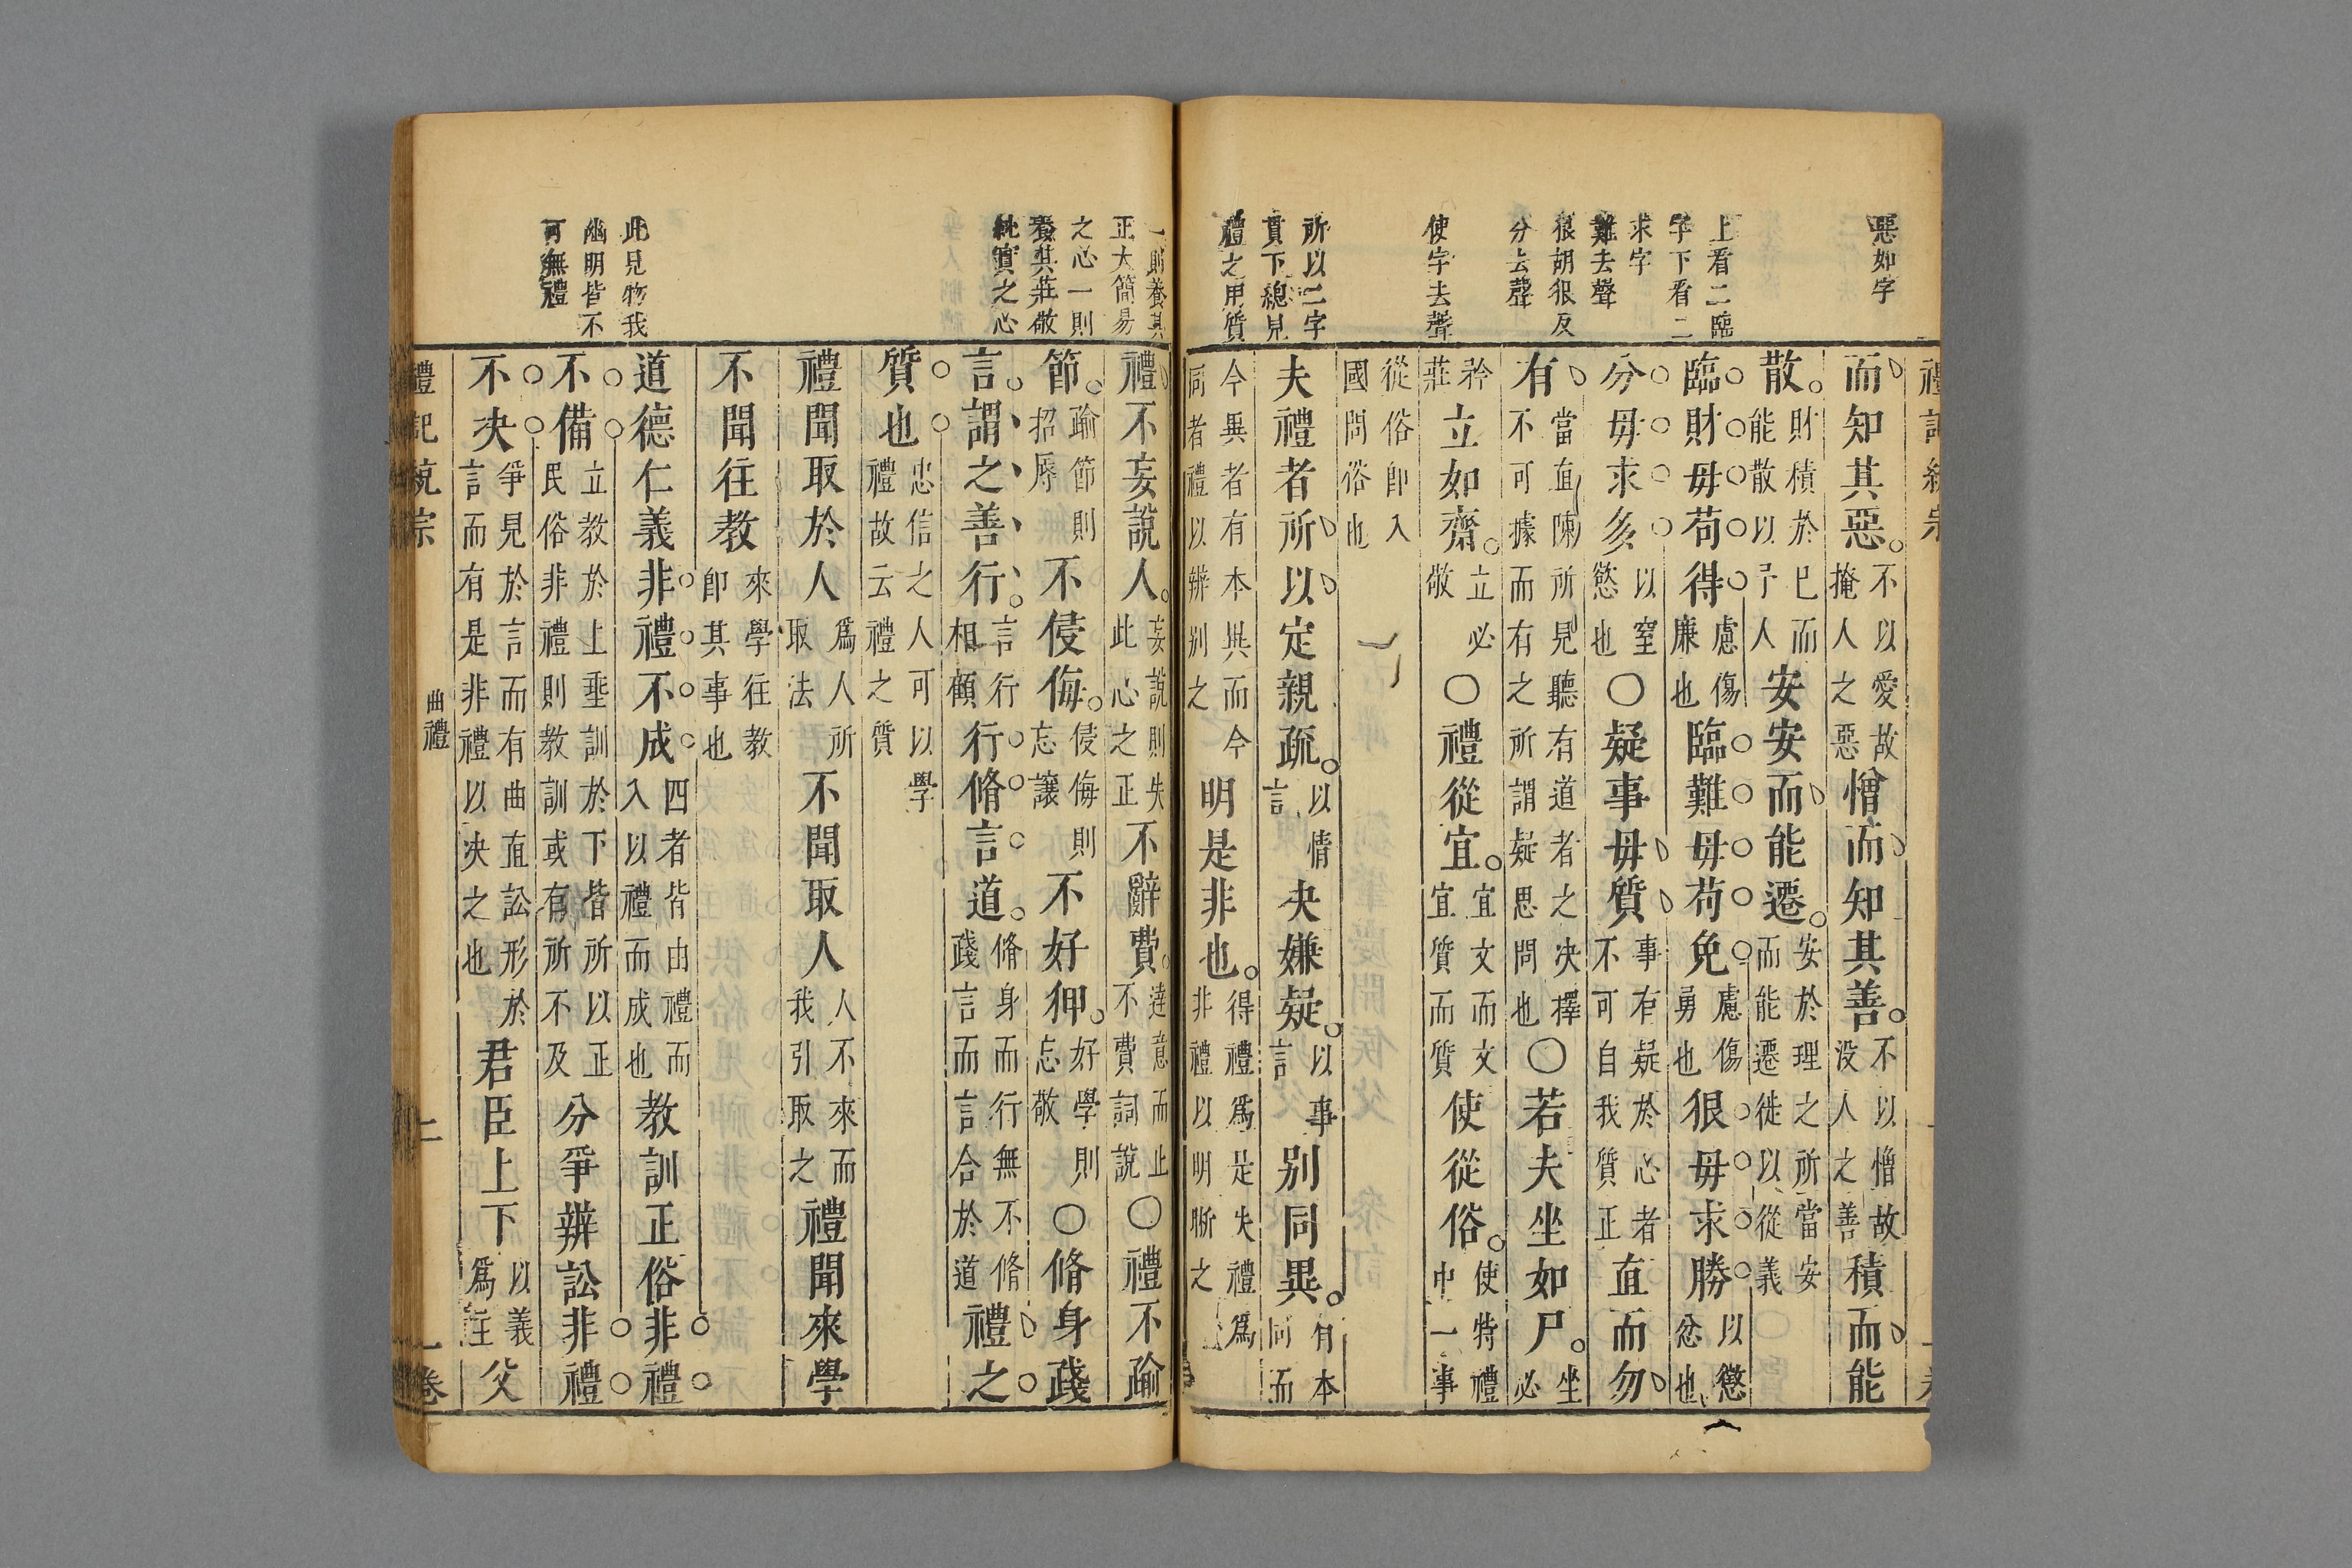 惡如字
上看二臨
字下看二
求字
難去聲
很胡很反
分去聲
使字去聲
所以二字
貫下總見
禮之用質
而知其惡。不以愛故掩人之惡憎而知其善。不以憎故没人之善積而能
散。財積於巳而能散以予人安安而能遷。安於理之所當安而能遷徙以從義
臨財毋苟得慮傷廉也臨難毋苟免慮傷勇也狠毋求勝以懲忿也
分毋求多以窒慾也○疑事毋質事有疑於心者不可自我質正直而勿
有當直陳所見聽有道者之决擇不可據而有之所謂疑思問也○若夫坐如尸。坐必
矜莊立如齊。立必敬○禮從宜。宜文而文宜質而質使從俗。使特禮中一事
從俗卽入國問俗也
夫禮者所以定親疏。以情言决嫌疑。以事言别同異。有本同而
今異者有本異而今同者禮以辨别之明是非也。得禮爲是失禮爲非禮以明晰之
一則養其
正大簡易
之心一則
養其莊敬
純實之心
此見物我
幽明皆不
可無禮
禮不妄說人。妄說則失此心之正不辭費。達意而止不費詞說○禮不踰
節。踰節則招辱不侵侮。侵侮則忘讓不好狎。好學則忘敬○脩身踐
言。謂之善行。言行相顧行脩言道。脩身而行無不脩踐言而言合於道禮之
質也忠信之人可以學禮故云禮之質
禮聞取於人爲人所取法不聞取人人不來而我引取之禮聞來學
不聞往教來學往教卽其事也
道德仁義非禮不成四者皆由禮而入以禮而成也教訓正俗非禮
不備立教於上垂訓於下皆所以正民俗非禮則教訓或有所不及分爭辨訟非禮
不决爭見於言而有曲直訟形於言而有是非禮以决之也君臣上下以義爲主父
禮記統宗 曲禮 二 一卷